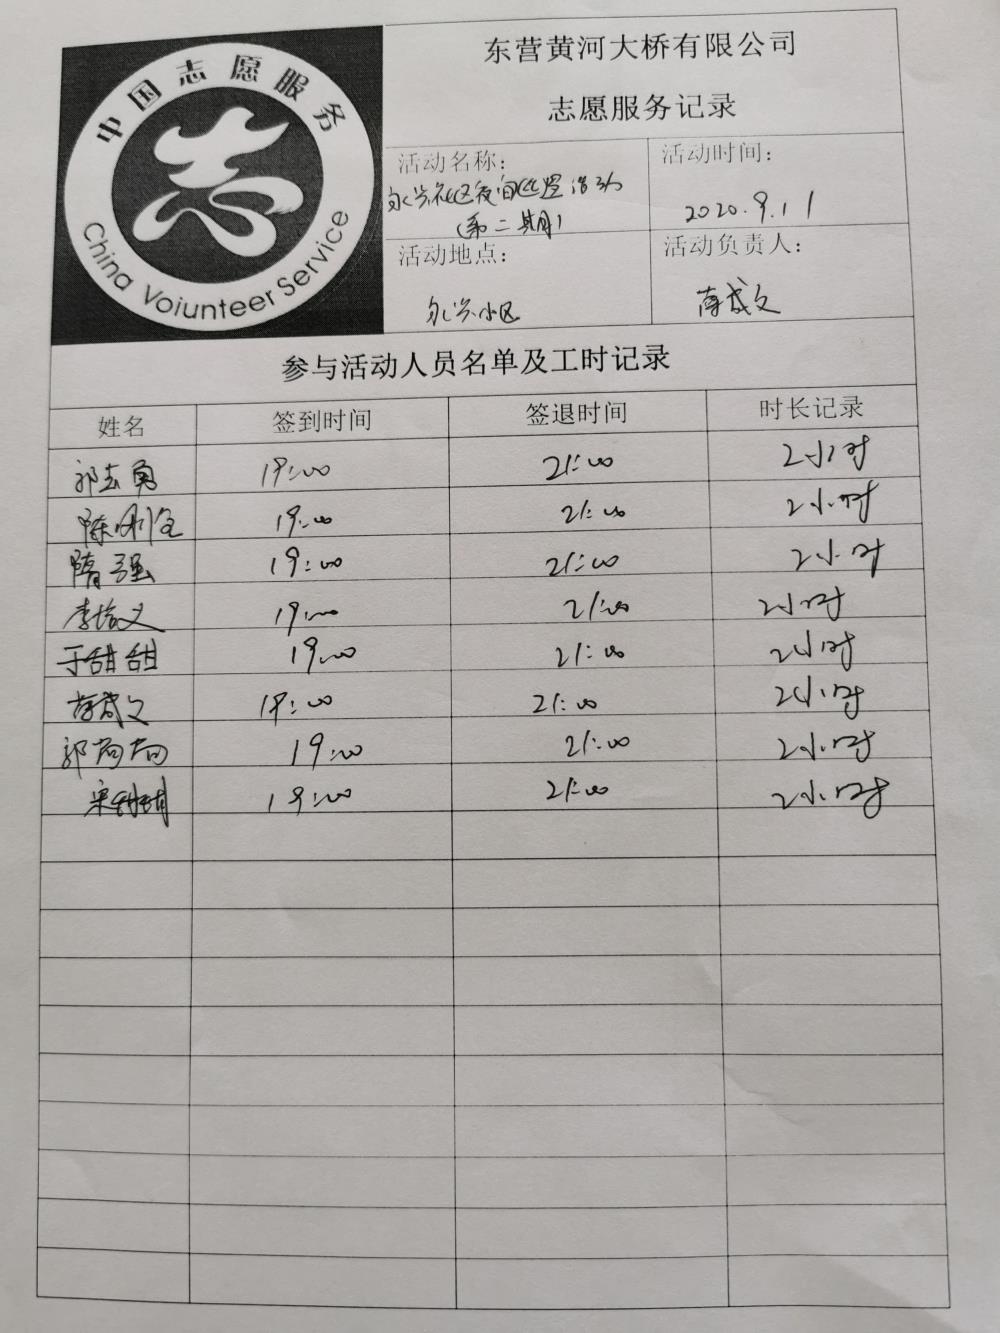 中国志愿服务
China Voiunteer Service
东营黄河大桥有限公司
志愿服务记录
活动名称：
永兴社区夜间巡逻活动
（第二期）
活动时间：
2020.9.11
活动地点：
永兴小区
活动负责人：
参与活动人员名单及工时记录
姓名 签到时间 签退时间 时长记录
郭志勇 19:00 21:00 2小时
陈刚 19:00 21:00 2小时
隋强 19:00 21:00 2小时
李 19:00 21:00 2小时
于甜甜 19:00 21:00 2小时
19:00 21:00 2小时
郭 19:00 21:00 2小时
宋 19:00 21:00 2小时